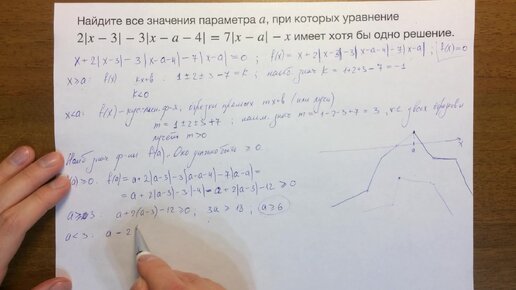 Найдите все значения параметра a, при которых уравнение
2|x − 3| − 3|x − a − 4| = 7|x − a| − x имеет хотя бы одно решение.
x + 2|x-3| - 3|x-a-4| - 7|x-a| = 0 ; f(x) = x + 2|x-3| - 3|x-a-4| - 7|x-a| , f(x)=0
x>a: f(x) kx+b. 1±2±3-7=k ; наиб. знач k = 1+2+3-7=-1
k<0
x<a: f(x) - кус.-лин. ф-я, отрезки прямых mx+b (или лучи)
m = 1±2±3+7 ; наим. знач m = 1-2-3+7=3,
m>0
Наиб знач ф-ии f(a). Оно должно быть ≥ 0.
f(a)≥0. f(a) = a+2|a-3|-3|a-a-4|-7|a-a| =
= a+2|a-3|-3|-4| = a+2|a-3|-12 ≥ 0
a≥3: a+2(a-3)-12≥0, 3a≥18, a≥6
a<3: a-2
a
x